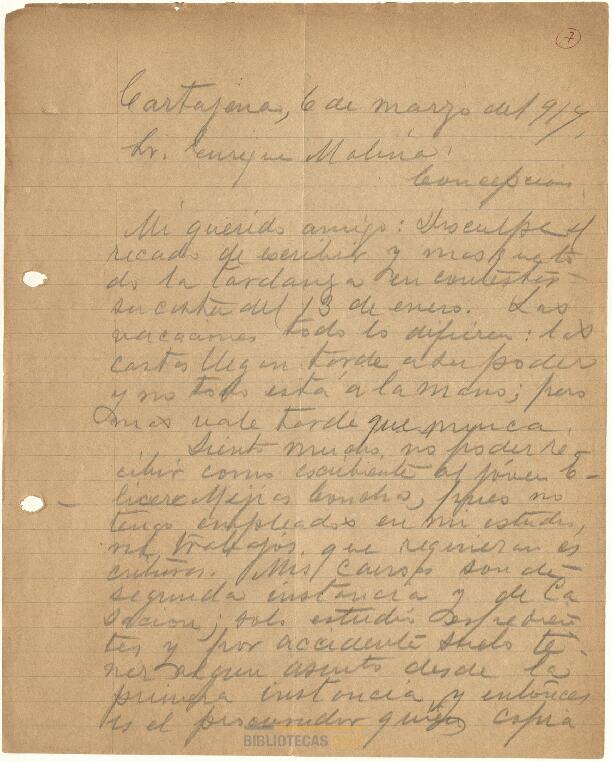 7
Cartajena, 6 de marzo del 917,
Sr. Enrique Molina.
Concepcion.
Mi querido amigo: Disculpe el
recado de escribir y mas que to
do la tardanza en contestar
su carta del 13 de enero. Las
vacaciones todo lo difieren: las
cartas llegan tarde a su poder
y no todo está a la mano; pero
mas vale tarde que nunca.
Siento mucho no poder re
cibir como escribiente al jóven E-
liecer Mejias Concha, pues no
tengo empleados en mi estudio,
ni trabajos que requieran es
cribirse. Mis causas son de
segunda instancia y de Ca
sacion; solo estudio espedien
tes y por accidente suelo te-
ner algun asunto desde la
primera instancia y entonces
es el procurador quien copia
BIBLIOTECAS